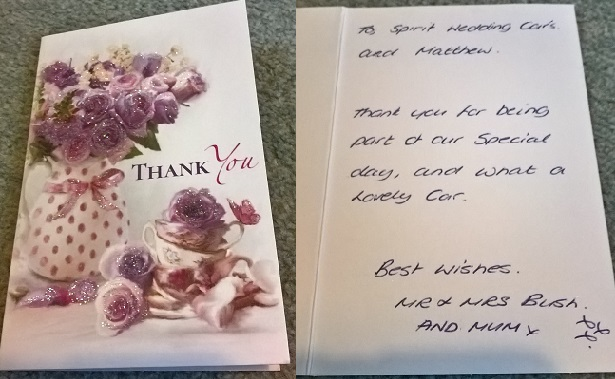 THANK You
To Spirit Wedding Cars.
and Matthew.
Thank you for being
part of our Special
day, and what a
Lovely Car.
Best wishes.
MR & MRS BUSH.
AND MUM x